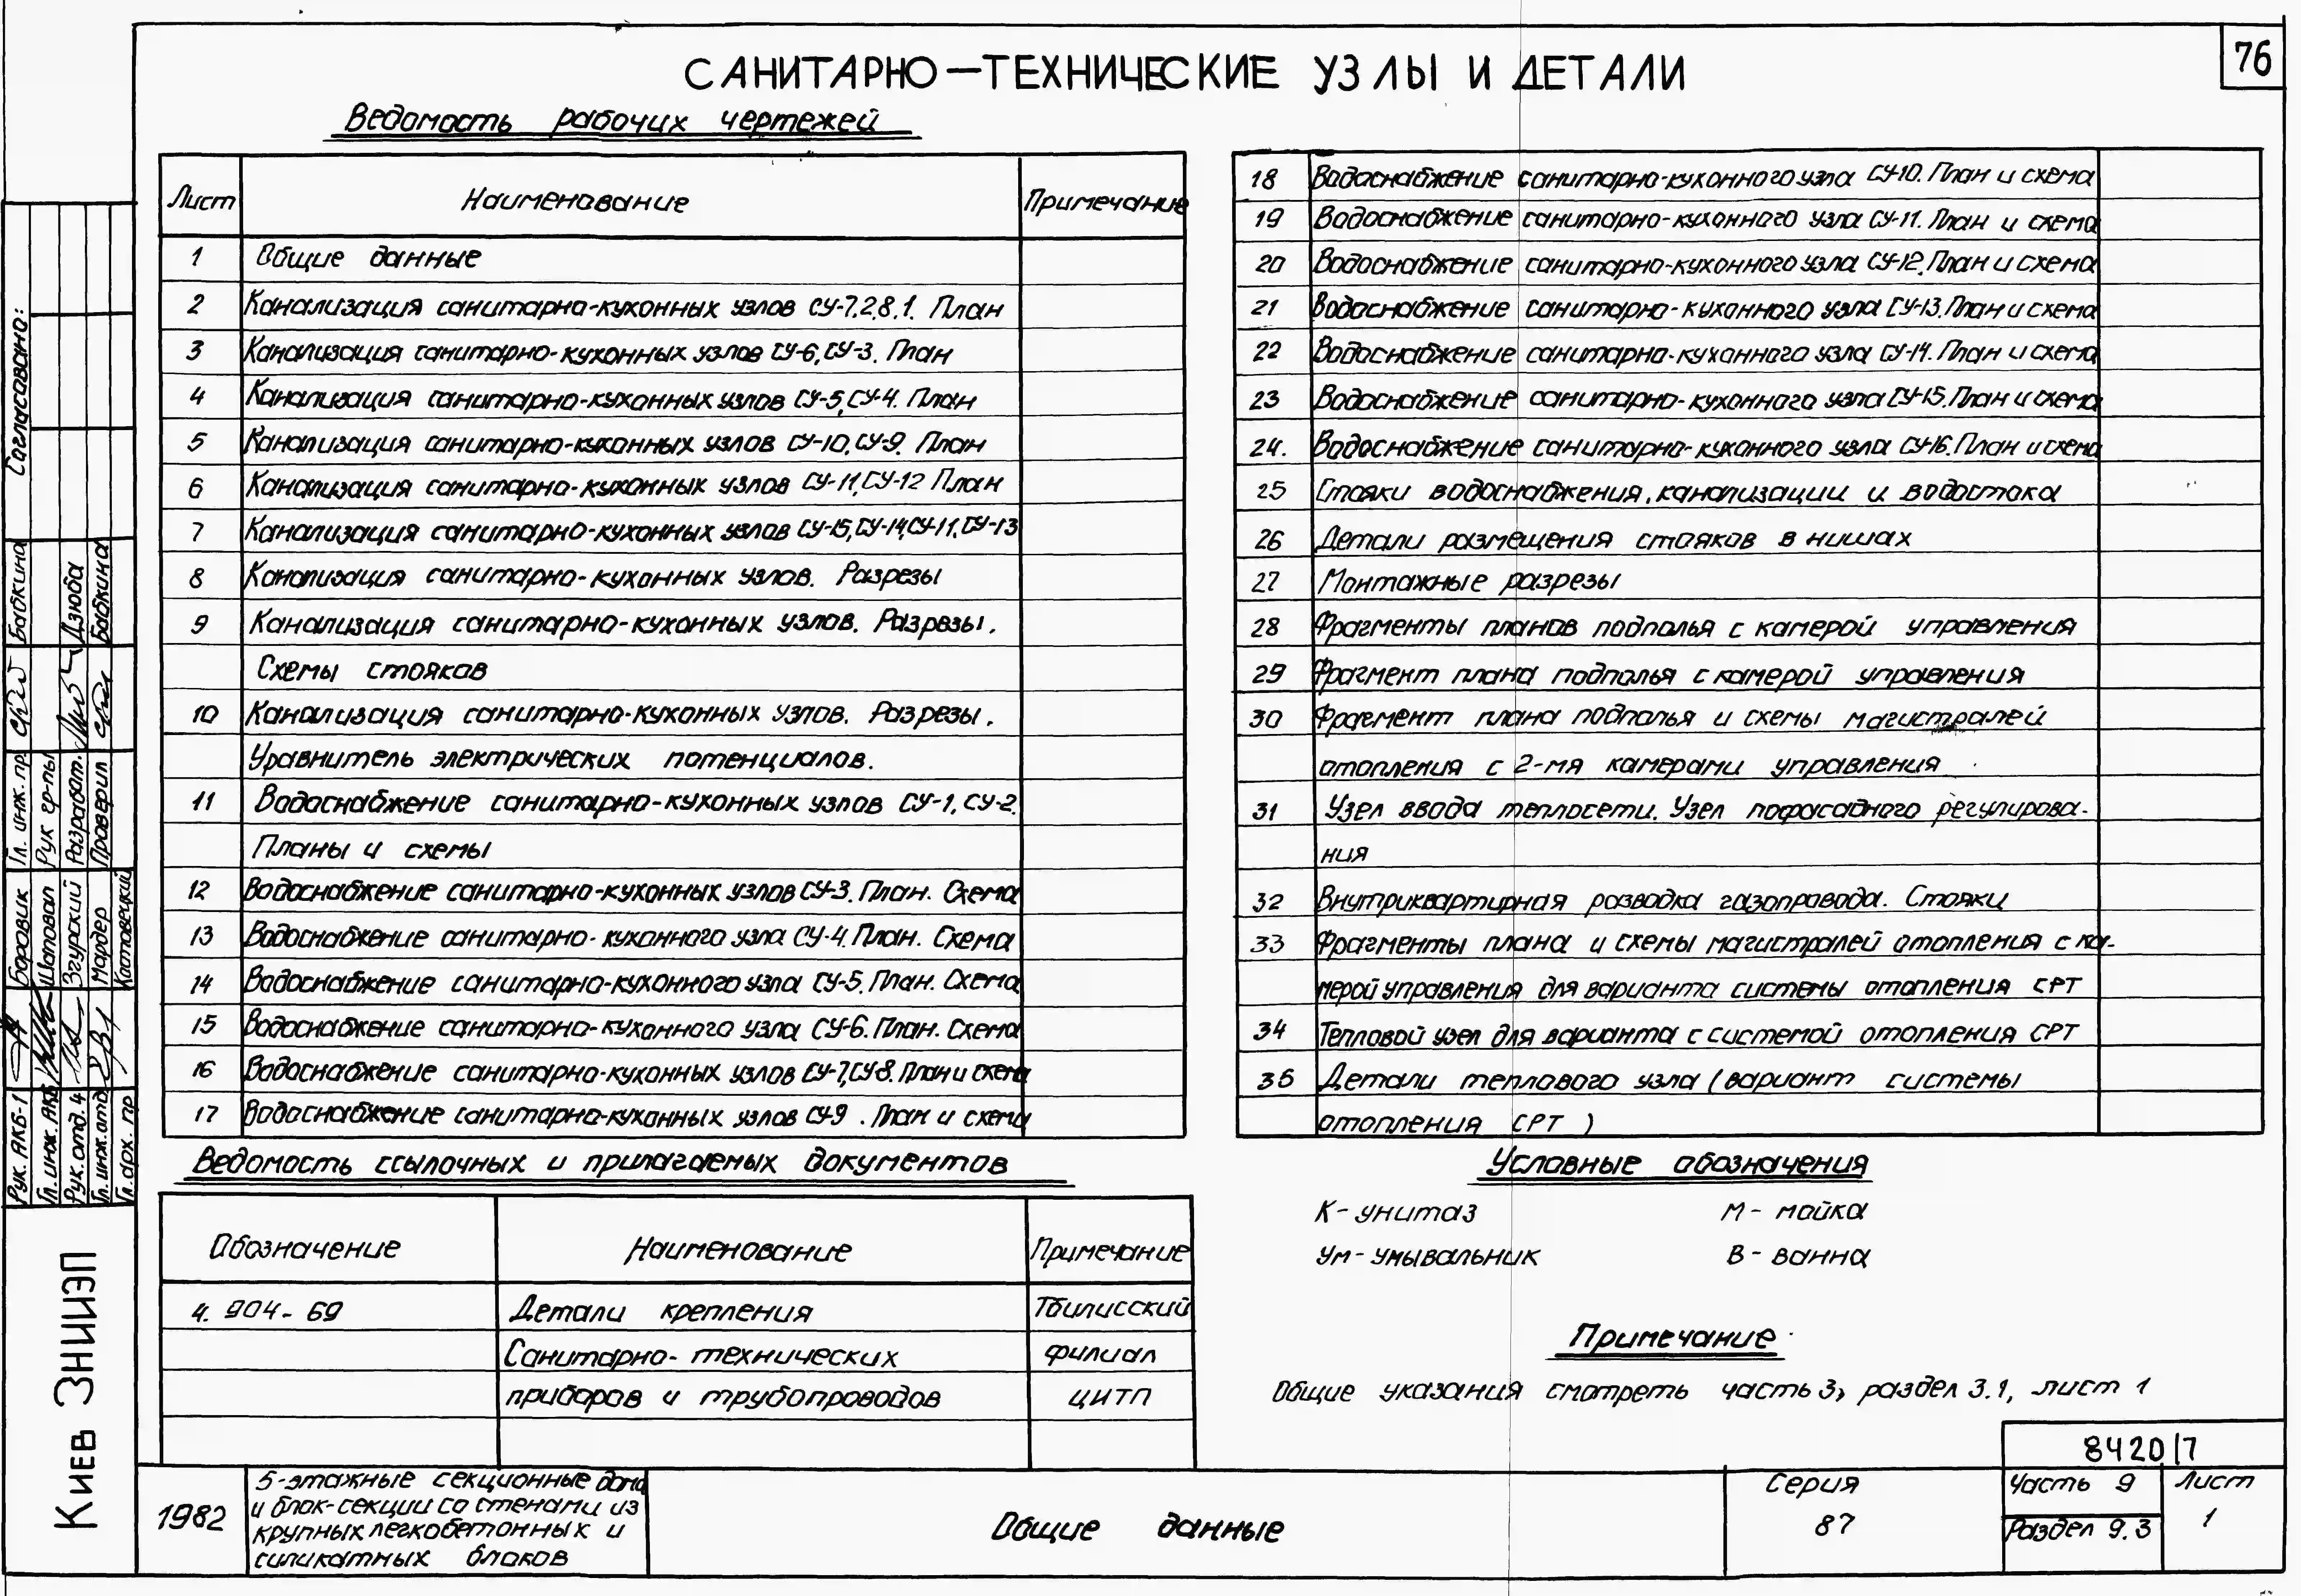 76
САНИТАРНО—ТЕХНИЧЕСКИЕ УЗЛЫ И ДЕТАЛИ
Ведомость рабочих чертежей
Лист Наименование Примечание
1 Общие данные
2 Канализация санитарно-кухонных узлов СУ-7,2,8,1. План
3 Канализация санитарно-кухонных узлов СУ-6, СУ-3. План
4 Канализация санитарно-кухонных узлов СУ-5, СУ-4. План
5 Канализация санитарно-кухонных узлов СУ-10, СУ-9. План
6 Канализация санитарно-кухонных узлов СУ-11, СУ-12 План
7 Канализация санитарно-кухонных узлов СУ-15, СУ-14, СУ-11, СУ-13
8 Канализация санитарно-кухонных узлов. Разрезы
9 Канализация санитарно-кухонных узлов. Разрезы.
Схемы стояков
10 Канализация санитарно-кухонных узлов. Разрезы.
Уравнитель электрических потенциалов.
11 Водоснабжение санитарно-кухонных узлов СУ-1, СУ-2.
Планы и схемы
12 Водоснабжение санитарно-кухонных узлов СУ-3. План. Схема
13 Водоснабжение санитарно-кухонного узла СУ-4. План. Схема
14 Водоснабжение санитарно-кухонного узла СУ-5. План. Схема
15 Водоснабжение санитарно-кухонного узла СУ-6. План. Схема
16 Водоснабжение санитарно-кухонных узлов СУ-7, СУ-8. План и схема
17 Водоснабжение санитарно-кухонных узлов СУ-9. План и схемы
18 Водоснабжение санитарно-кухонного узла СУ-10. План и схема
19 Водоснабжение санитарно-кухонного узла СУ-11. План и схема
20 Водоснабжение санитарно-кухонного узла СУ-12. План и схема
21 Водоснабжение санитарно-кухонного узла СУ-13. План и схема
22 Водоснабжение санитарно-кухонного узла СУ-14. План и схема
23 Водоснабжение санитарно-кухонного узла СУ-15. План и схема
24. Водоснабжение санитарно-кухонного узла СУ-16. План и схема
25 Стояки водоснабжения, канализации и водостока
26 Детали размещения стояков в нишах
27 Монтажные разрезы
28 Фрагменты планов подполья с камерой управления
29 Фрагмент плана подполья с камерой управления
30 Фрагмент плана подполья и схемы магистралей
отопления с 2-мя камерами управления
31 Узел ввода теплосети. Узел пофасадного регулирова-
ния
32 Внутриквартирная разводка газопровода. Стояки
33 Фрагменты плана и схемы магистралей отопления с ка-
мерой управления для варианта системы отопления СРТ
34 Тепловой узел для варианта с системой отопления СРТ
36 Детали теплового узла (вариант системы
отопления СРТ)
Ведомость ссылочных и прилагаемых документов
Обозначение Наименование Примечание
4. 904-69 Детали крепления Тбилисский
Санитарно-технических филиал
приборов и трубопроводов ЦИТП
Условные обозначения
К - унитаз М - мойка
Ум - умывальник В - ванна
Примечание
Общие указания смотреть часть 3, раздел 3.1, лист 1
8420/7
1982
5-этажные секционные дома
и блок-секции со стенами из
крупных легкобетонных и
силикатных блоков
Общие данные
Серия
87
Часть 9
Раздел 9.3
Лист
1
Согласовано:
Гл. инж. пр Бабкина
Рук гр-пы
Разработ. Дзюба
Проверил Бабкина
Рук. АКБ-1 Боровик
Гл. инж. АКБ Шаповал
Рук. отд. 4 Згурский
Гл. инж. отд Мардер
Гл. арх. пр Катовецкий
Киев ЗНИИЭП